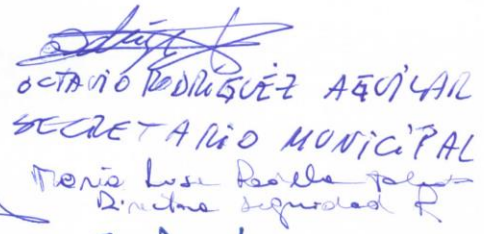 OCTAVIO RODRIGUEZ AGUILAR
SECRETARIO MUNICIPAL
Maria Luisa Padilla
Directora seguridad P